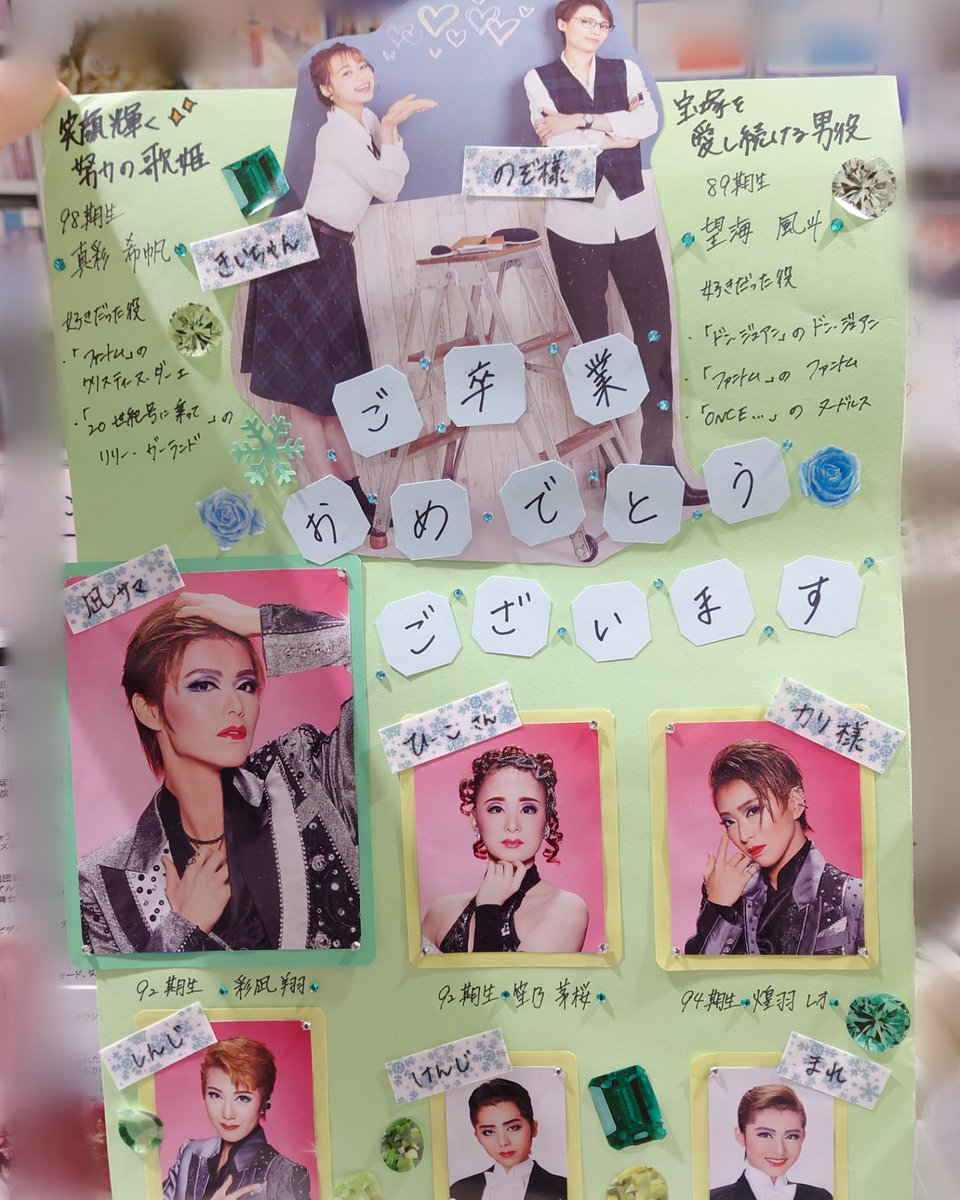 笑顔輝く
努力の歌姫
98期生
真彩 希帆
きいちゃん
好きだった役
・「ファントム」の
クリスティーヌ・ダーエ
・「20世紀号に乗って」の
リリー・ガーランド
のぞ様
宝塚を
愛し続ける男役
89期生
望海 風斗
好きだった役
・「ドン・ジュアン」のドン・ジュアン
・「ファントム」の ファントム
・「ONCE...」の ヌードルス
ご卒業
おめでとう
ございます
凪サマ
92期生・彩凪翔
ひーこさん
92期生・笙乃 茅桜
カリ様
94期生・煌羽 レオ
しんじ
けんじ
まれ